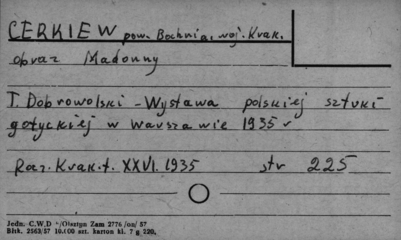 CERKIEW pow. Bochnia, woj. Krak.
obraz Madonny
T. Dobrowolski - Wystawa polskiej sztuki
gotyckiej w Warszawie 1935 r
Roz. Krak. t. XXVI. 1935 str 225
Jedn. C.W.D Olsztyn Zam 2776 /on/ 57
Błtk. 2563/57 10.000 szt. karton kl. 7 g 220.